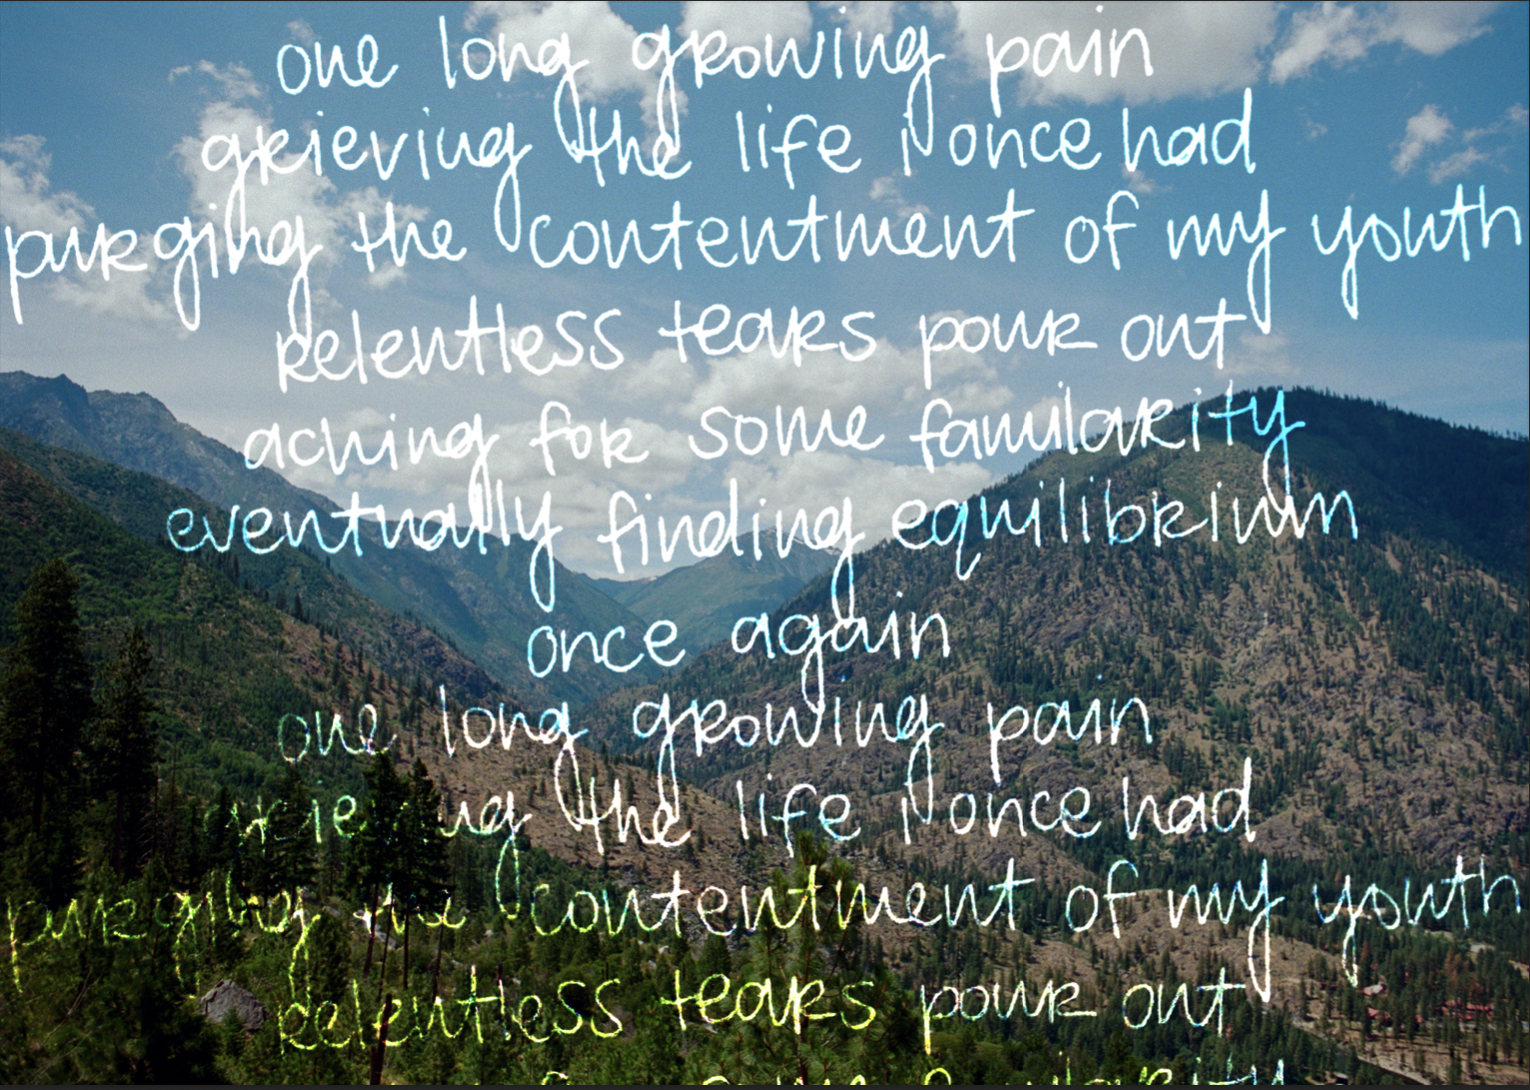 one long growing pain
grieving the life i once had
purging the contentment of my youth
relentless tears pour out
aching for some familarity
eventually finding equilibrium
once again
one long growing pain
grieving the life i once had
purging the contentment of my youth
relentless tears pour out
some familarity